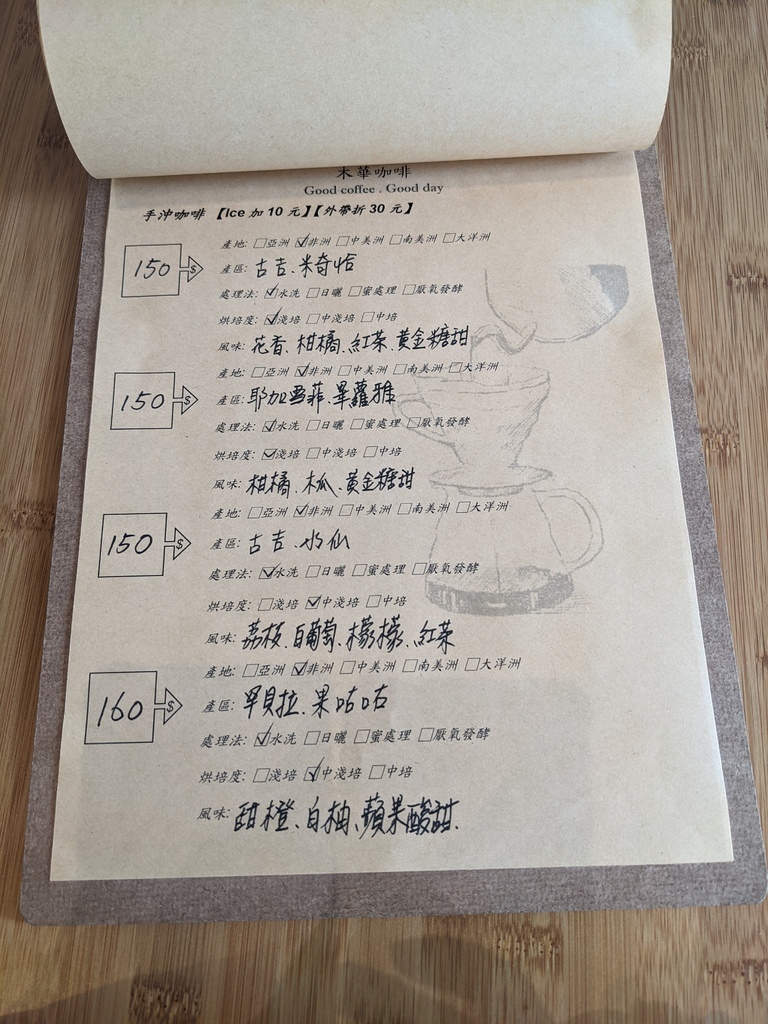 木華咖啡
Good coffee . Good day
手沖咖啡 【Ice 加 10 元】【外帶折 30 元】
150 $
產地: □亞洲 ☑非洲 □中美洲 □南美洲 □大洋洲
產區: 古吉、米奇恰
處理法: ☑水洗 □日曬 □蜜處理 □厭氧發酵
烘培度: ☑淺培 □中淺培 □中培
風味: 花香、柑橘、紅茶、黃金糖甜
150 $
產地: □亞洲 ☑非洲 □中美洲 □南美洲 □大洋洲
產區: 耶加雪菲、畢蘿雅
處理法: ☑水洗 □日曬 □蜜處理 □厭氧發酵
烘培度: ☑淺培 □中淺培 □中培
風味: 柑橘、木瓜、黃金糖甜
150 $
產地: □亞洲 ☑非洲 □中美洲 □南美洲 □大洋洲
產區: 古吉、水仙
處理法: ☑水洗 □日曬 □蜜處理 □厭氧發酵
烘培度: □淺培 ☑中淺培 □中培
風味: 荔枝、白葡萄、檸檬、紅茶
160 $
產地: □亞洲 ☑非洲 □中美洲 □南美洲 □大洋洲
產區: 罕貝拉、果咕咕
處理法: ☑水洗 □日曬 □蜜處理 □厭氧發酵
烘培度: □淺培 ☑中淺培 □中培
風味: 甜橙、白柚、蘋果酸甜.